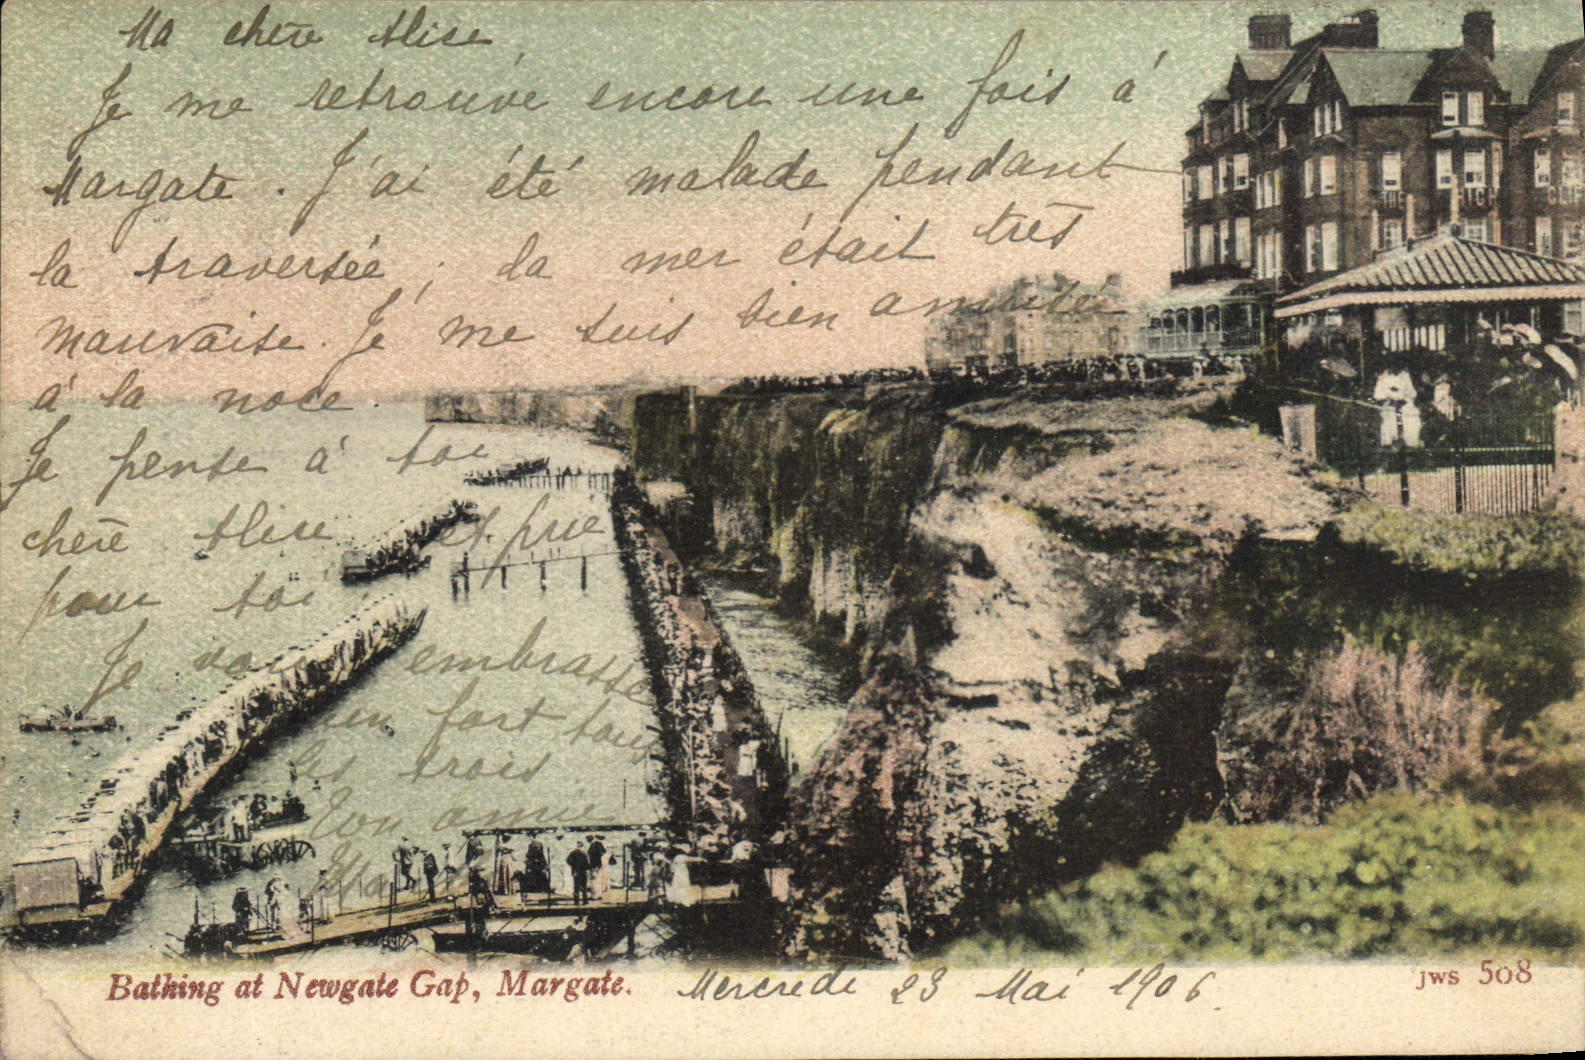 Ma chère Alise
Je me retrouve encore une fois à
Margate. J'ai été malade pendant
la traversée; la mer était très
mauvaise. Je me suis bien amusée
à la noce.
Je pense à toi
chère Alise et prie
pour toi.
Je vous embrasse
bien fort tous
les trois
Ton amie
Bathing at Newgate Gap, Margate.
Mercredi 23 Mai 1906.
JWS 508